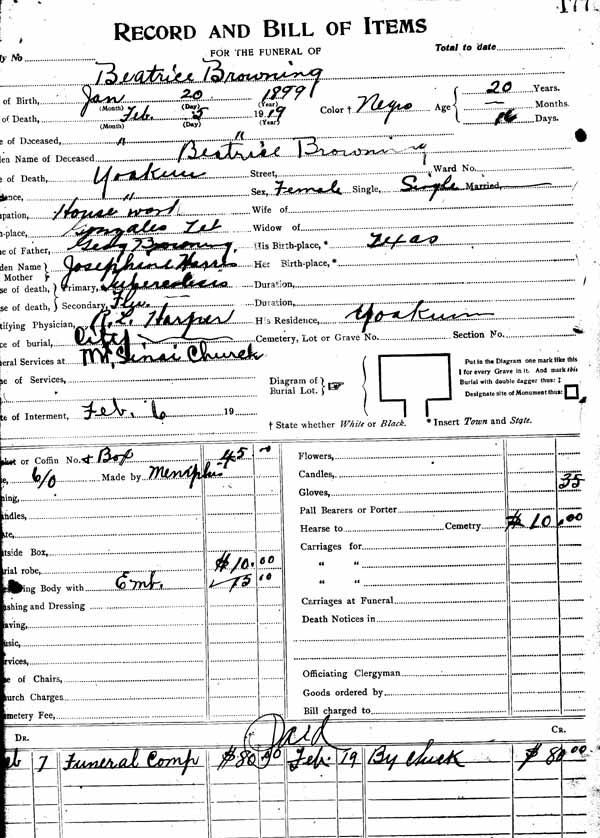 177
RECORD AND BILL OF ITEMS
FOR THE FUNERAL OF
Total to date
ly No
Beatrice Browning
of Birth, Jan 20 1899 (Month) (Day) (Year)
of Death, Feb. 5 1919 (Month) (Day) (Year)
Color † Negro Age 20 Years. — Months. 16 Days.
e of Deceased, " "
den Name of Deceased Beatrice Browning
e of Death, Yoakum Street, Ward No.
ence, " Sex, Female Single, Single Married,
pation, House work Wife of
-place, Gonzales Widow of
e of Father, Browning, His Birth-place, * Texas
den Name Mother Josephine Harris Her Birth-place, *
se of death, Primary, tuberculosis Duration,
se of death, Secondary, Flu. — Duration,
tifying Physician, Harper His Residence, Yoakum
ce of burial, City Cemetery, Lot or Grave No. Section No.
eral Services at Mt. Sinai Church
e of Services,
te of Interment, Feb. 6 19
Diagram of Burial Lot.
Put in the Diagram one mark like this
I for every Grave in it. And mark this
Burial with double dagger thus: ‡
Designate site of Monument thus:
† State whether White or Black. * Insert Town and State.
or Coffin No. & Box 45 00
6/0 Made by Memphis
ning,
ndles,
tside Box,
rial robe, $10.00
ing Body with Emb. 15 00
shing and Dressing
aving,
usic,
rvices,
e of Chairs,
urch Charges
metery Fee,
Flowers,
Candles, 35
Gloves,
Pall Bearers or Porter
Hearse to Cemetry $10.00
Carriages for
" "
" "
Carriages at Funeral
Death Notices in
Officiating Clergyman
Goods ordered by
Bill charged to
Paid
DR. CR.
eb 7 Funeral Comp $80.00 Feb. 19 By Check $80.00